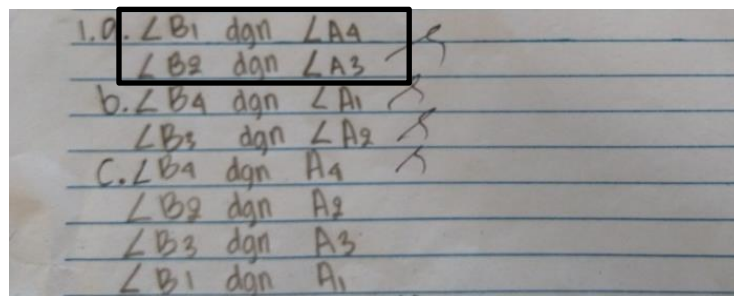 1.a. ∠B1 dgn ∠A4
∠B2 dgn ∠A3
b. ∠B4 dgn ∠A1
∠B3 dgn ∠A2
C. ∠B4 dgn A4
∠B2 dgn A2
∠B3 dgn A3
∠B1 dgn A1